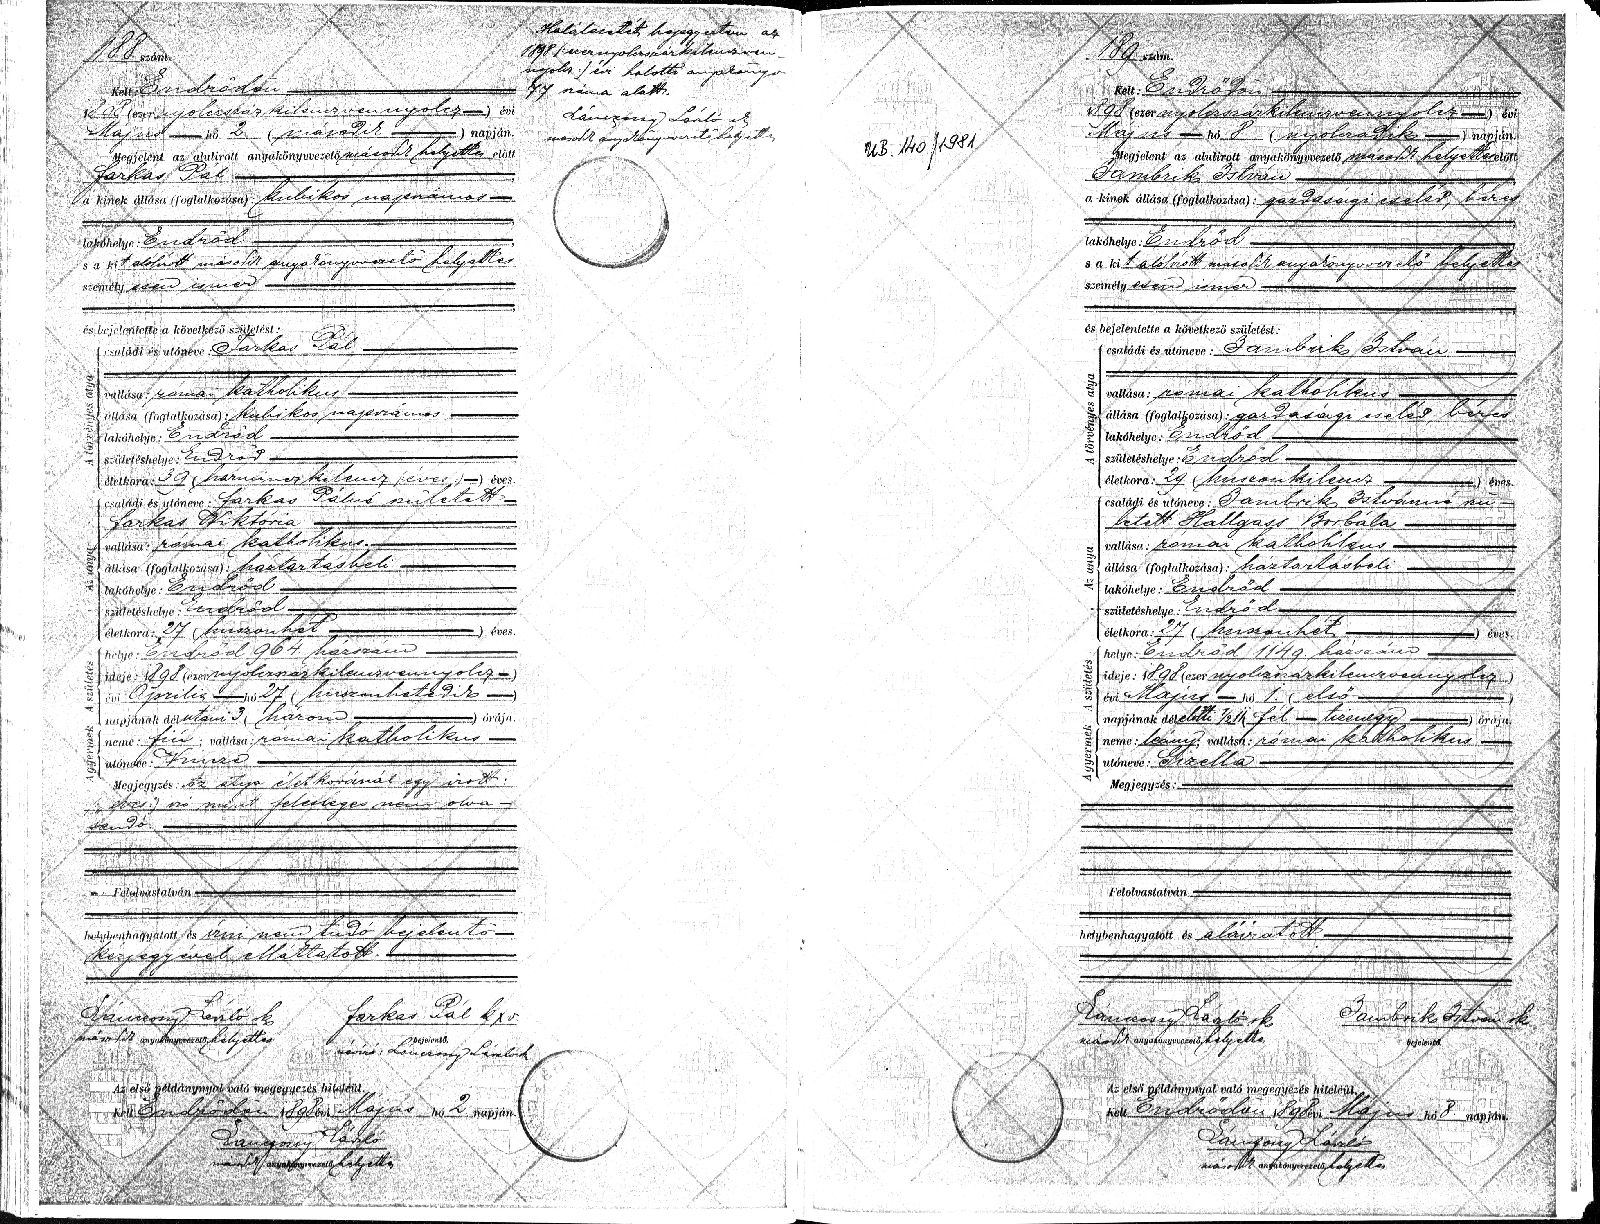 188 szám.
Kelt: Endrődön
1898 (ezernyolczszázkilenczvennyolcz) évi
Május hó 2 (második) napján.
Megjelent az alulirott anyakönyvvezető második helyettes előtt
Farkas Pál
a kinek állása (foglalkozása): kubikos napszámos
lakóhelye: Endrőd
s a kit alólirott második anyakönyvvezető helyettes
személyesen ismer
és bejelentette a következő születést:
A törvényes atya
családi és utóneve: Farkas Pál
vallása: római katholikus
állása (foglalkozása): kubikos napszámos
lakóhelye: Endrőd
születéshelye: Endrőd
életkora: 39 (harminczkilencz (éves) éves.
Az anya
családi és utóneve: Farkas Pálné született
Farkas Viktória
vallása: római katholikus.
állása (foglalkozása): háztartásbeli
lakóhelye: Endrőd
születéshelye: Endrőd
életkora: 27 (huszonhét) éves.
A születés
helye: Endrőd 964 házszám
ideje: 1898 (ezernyolczszázkilenczvennyolcz)
évi Április hó 27 (huszonhetedik)
napjának délutáni 3 (három) órája.
A gyermek
neme: fiú; vallása: római katholikus
utóneve: Vincze
Megjegyzés: Az atya életkoránál egy irott
(: éves :) szó mint felesleges nem olva-
sandó.
Felolvastatván
helybenhagyatott és irni nem tudó bejelentő
kézjegyével elláttatott.
Lánczony László sk
második anyakönyvvezető helyettes
Farkas Pál k x v.
bejelentő.
Az első példánynyal való megegyezés hiteléül.
Kelt Endrődön 1898 évi Május hó 2 napján.
Lánczony László
második anyakönyvvezető helyettes
Halálesetét bejegyeztem az
1898 (: ezernyolczszázkilenczven-
nyolcz :) évi halotti anyakönyv
77 száma alatt.
Lánczony László sk
második anyakönyvvezető helyettes
UB. 140/1981
189 szám.
Kelt: Endrődön
1898 (ezernyolczszázkilenczvennyolcz) évi
Május hó 8 (nyolczadik) napján.
Megjelent az alulirott anyakönyvvezető második helyettes előtt
Tambrik István
a kinek állása (foglalkozása): gazdasági cseléd, béres
lakóhelye: Endrőd
s a kit alólirott második anyakönyvvezető helyettes
személyesen ismer
és bejelentette a következő születést:
A törvényes atya
családi és utóneve: Tambrik István
vallása: római katholikus
állása (foglalkozása): gazdasági cseléd, béres
lakóhelye: Endrőd
születéshelye: Endrőd
életkora: 29 (huszonkilencz) éves.
Az anya
családi és utóneve: Tambrik Istvánné szü-
letett Hallgass Borbála
vallása: római katholikus
állása (foglalkozása): háztartásbeli
lakóhelye: Endrőd
születéshelye: Endrőd
életkora: 27 (huszonhét) éves.
A születés
helye: Endrőd 1149 házszám
ideje: 1898 (ezernyolczszázkilenczvennyolcz)
évi Május hó 1. (első)
napjának délelőtti 1/2 11 (fél tizenegy) órája.
A gyermek
neme: leány; vallása: római katholikus
utóneve: Gizella
Megjegyzés:
Felolvastatván
helybenhagyatott és aláiratott
Lánczony László sk
második anyakönyvvezető helyettes
Tambrik István sk
bejelentő
Az első példánynyal való megegyezés hiteléül.
Kelt Endrődön 1898 évi Május hó 8 napján.
Lánczony László
második anyakönyvvezető helyettes